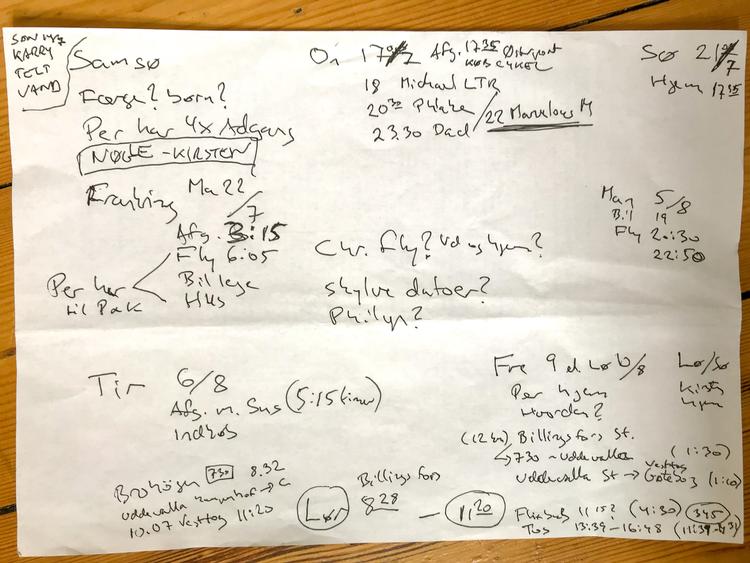 KARRY
TELT
VAND
Samsø
Færge? børn?
Per har 4x Adgang
NØGLE - KIRSTEN
On 17/7 Afg. 17 35 Østerport
18 Michael LTR
20 30
23.30 Dad
22 Marvelous M
Sø 21/7
Hjem 17 35
Frankrig Ma 22/7
Afg. 3:15
Fly 6:05
Billeje
Hus
Per har
til Pak
Chr. Fly? Ud og hjem?
datoer?
Philip?
Man 5/8
Bil 19
Fly 20:30
22:50
Tir 6/8
Afg. m. Sus (5:15 timer)
Indkøb
Fre 9 el Lø 10/8
Per hjem
Hvordan?
Lø/Sø
Kirsten
hjem
Billingsfors St.
730 - Uddevalla (1:30)
Uddevalla St → Göteborg (1:10)
Västtåg
730 8.32
Uddevalla → C
10.07 Västtåg 11:20
Lør
Billingsfors
8 28 - 11 20
Flixbus 11 15? (4:30) 345
Tog 13:39 - 16:48